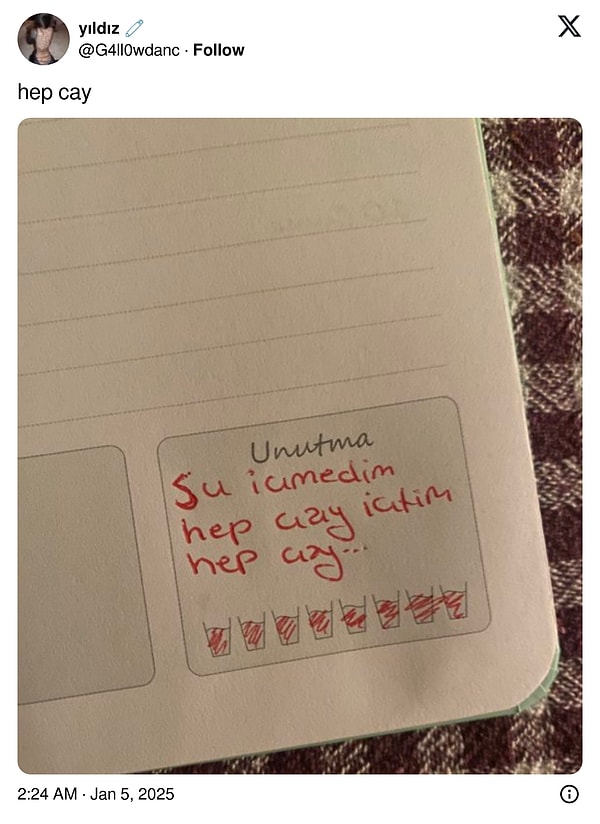 yıldız
@G4ll0wdanc · Follow
hep cay
Unutma
Su içmedim
hep çay içtim
hep çay...
2:24 AM · Jan 5, 2025